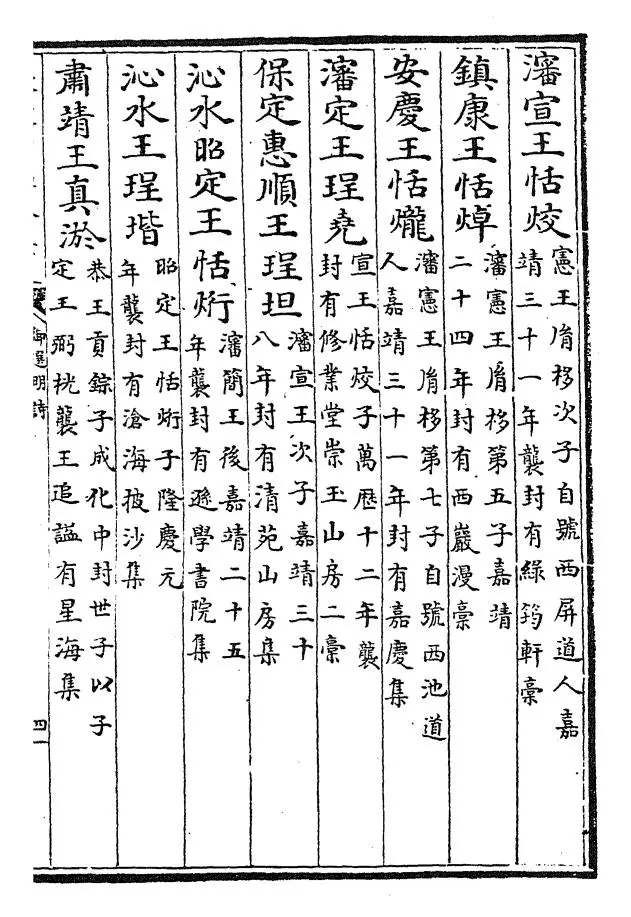 瀋宣王恬烄
憲王胤栘次子自號西屏道人嘉
靖三十一年襲封有綠筠軒稾
鎮康王恬焯
瀋憲王胤栘第五子嘉靖
二十四年封有西巖漫稾
安慶王恬爖
瀋憲王胤栘第七子自號西池道
人嘉靖三十一年封有嘉慶集
瀋定王珵堯
宣王恬烄子萬歷十二年襲
封有修業堂崇玉山房二稾
保定惠順王珵坦
瀋宣王次子嘉靖三十
八年封有清苑山房集
沁水昭定王恬烆
瀋簡王後嘉靖二十五
年襲封有遜學書院集
沁水王珵堦
昭定王恬烆子隆慶元
年襲封有滄海披沙集
肅靖王真淤
恭王貢錝子成化中封世子以子
定王弼桄襲王追謚有星海集
御選明詩
四一